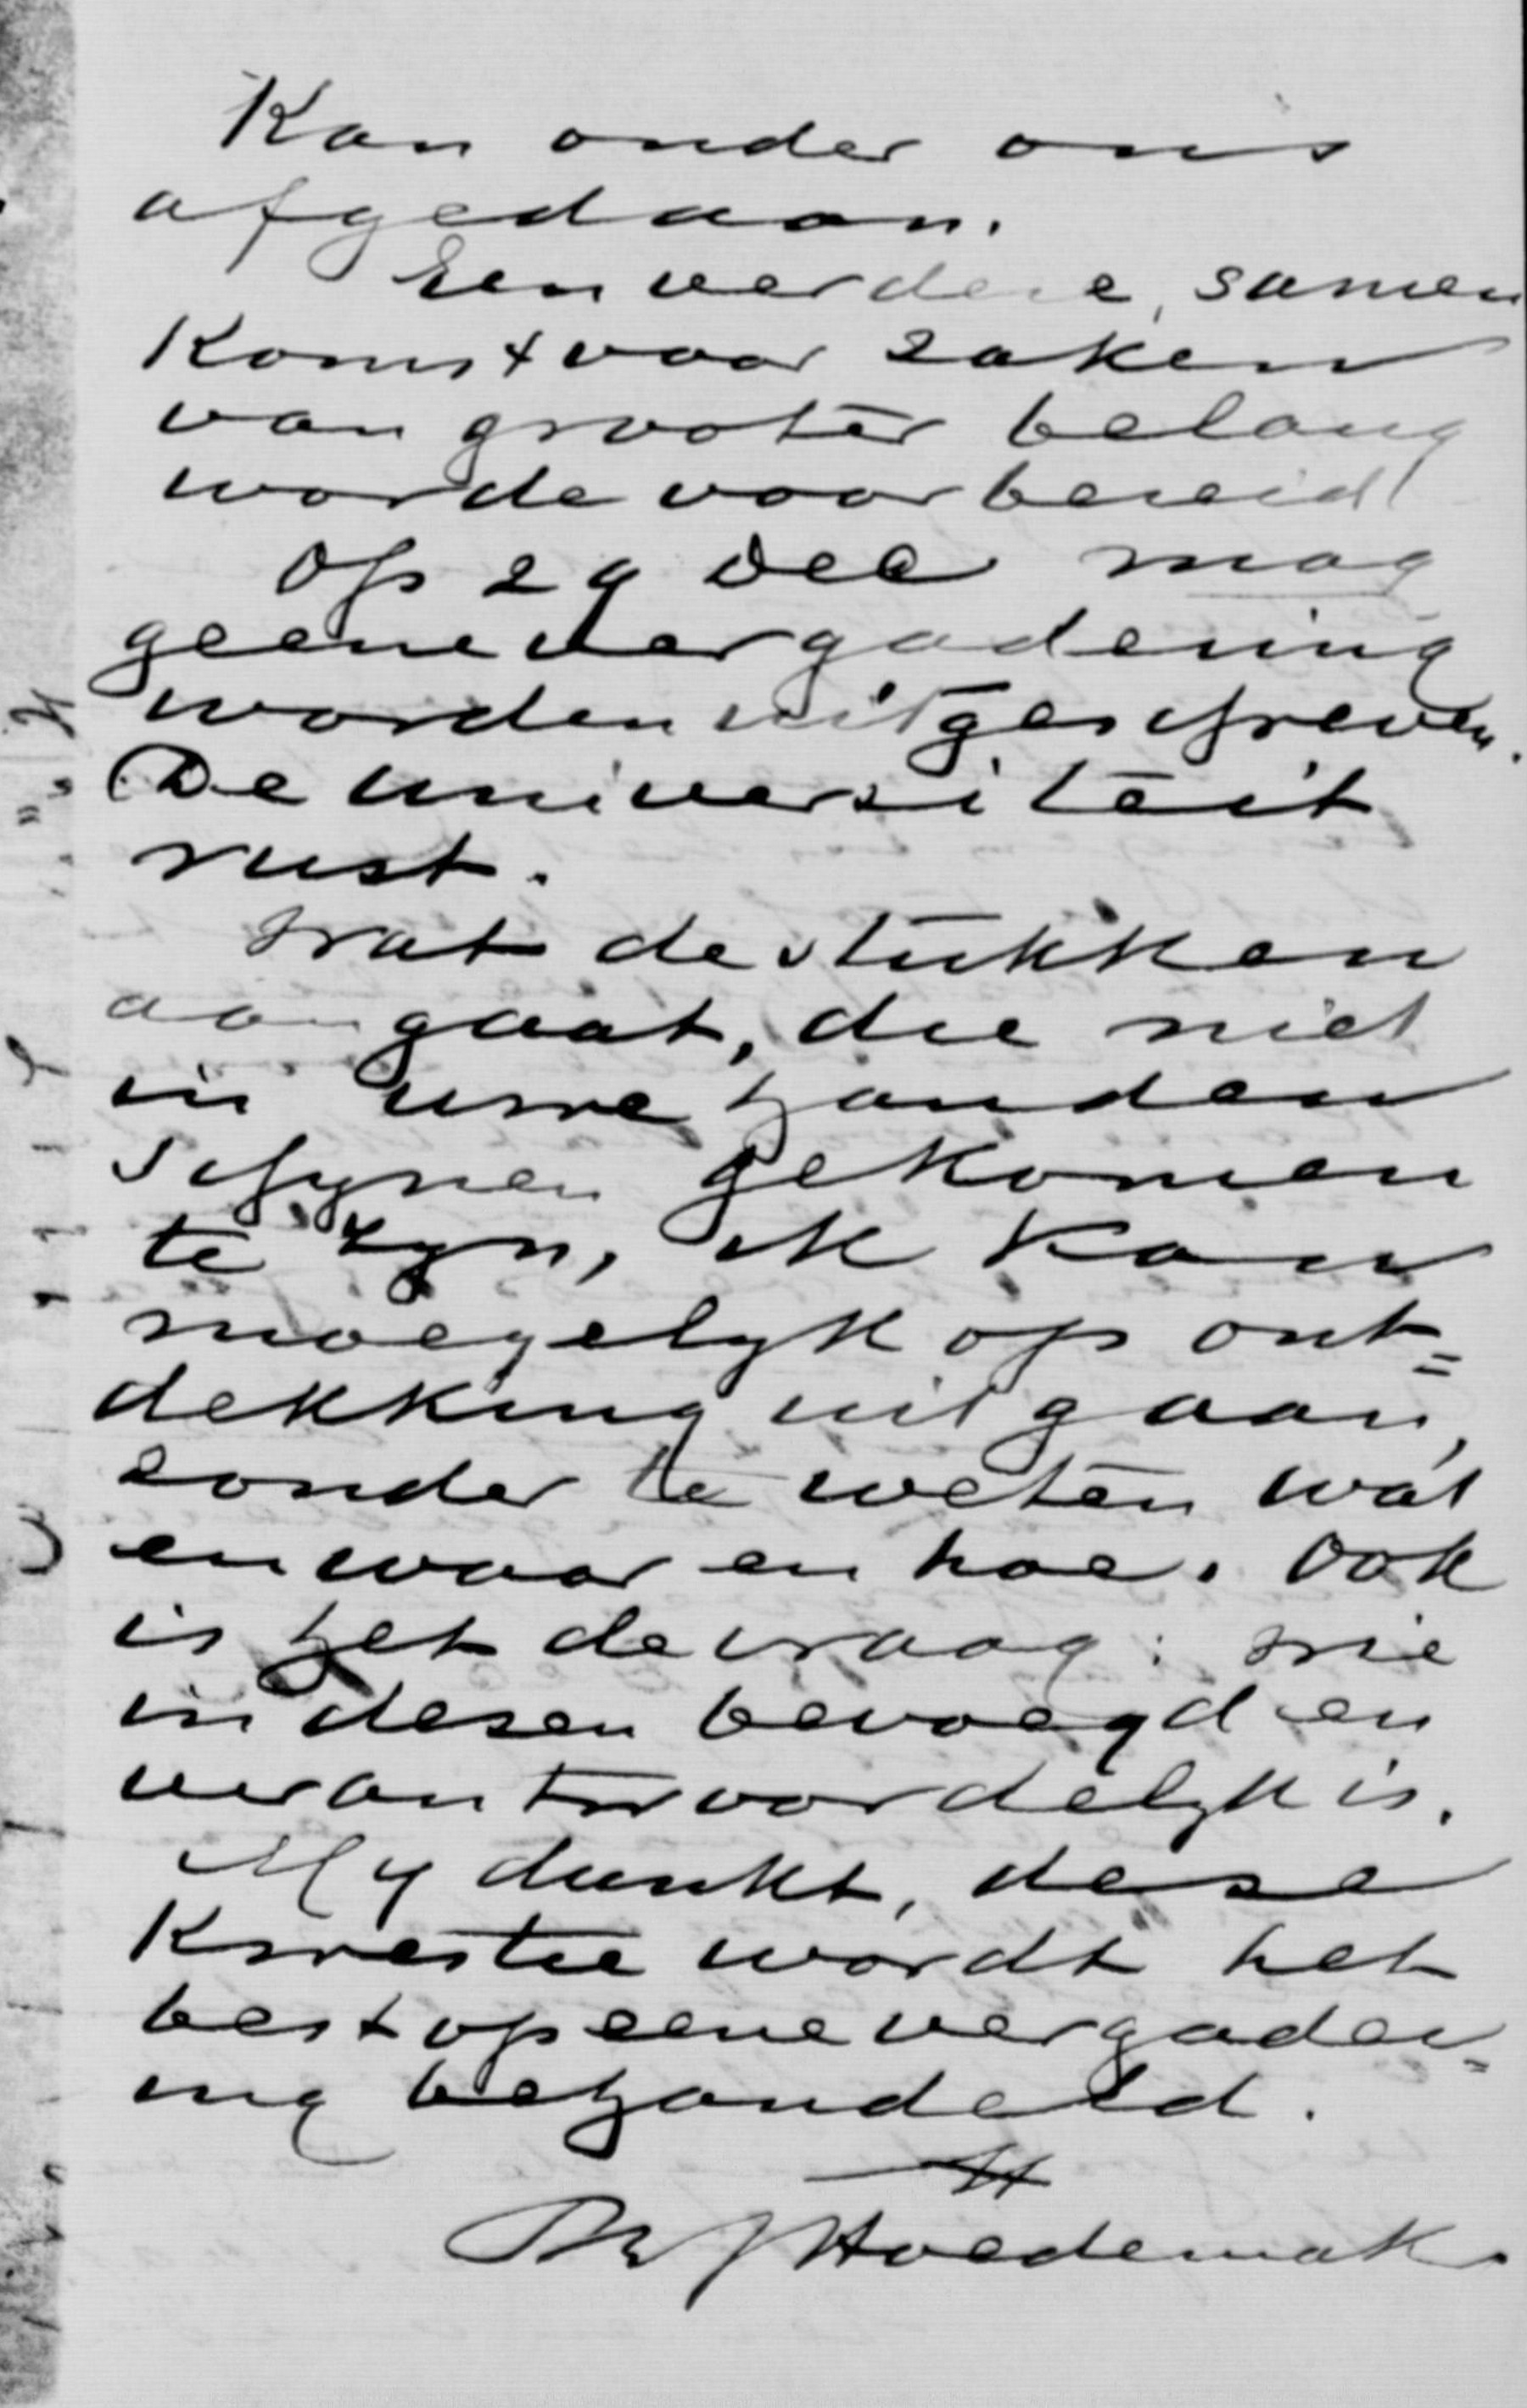 Kan onder ons
afgedaan.
Een verdere, samen
komst voor zaken
van grooter belang
worde voorbereid
Op 29 Dec mag
geene vergadering
worden uitgeschreven.
De universiteit
rust.
Wat de stukken
aangaat, die niet
in uwe handen
schynen gekomen
te zyn, ik kan
moegelyk op ont=
dekking uitgaan,
zonder te weten wat
en waar en hoe. Ook
is het de vraag: wie
in dezen bevoegd en
verantwoordelyk is.
My dunkt, deze
kwestie wordt het
best op eene vergader=
ing behandeld.
tt
Ph J Hoedemaker